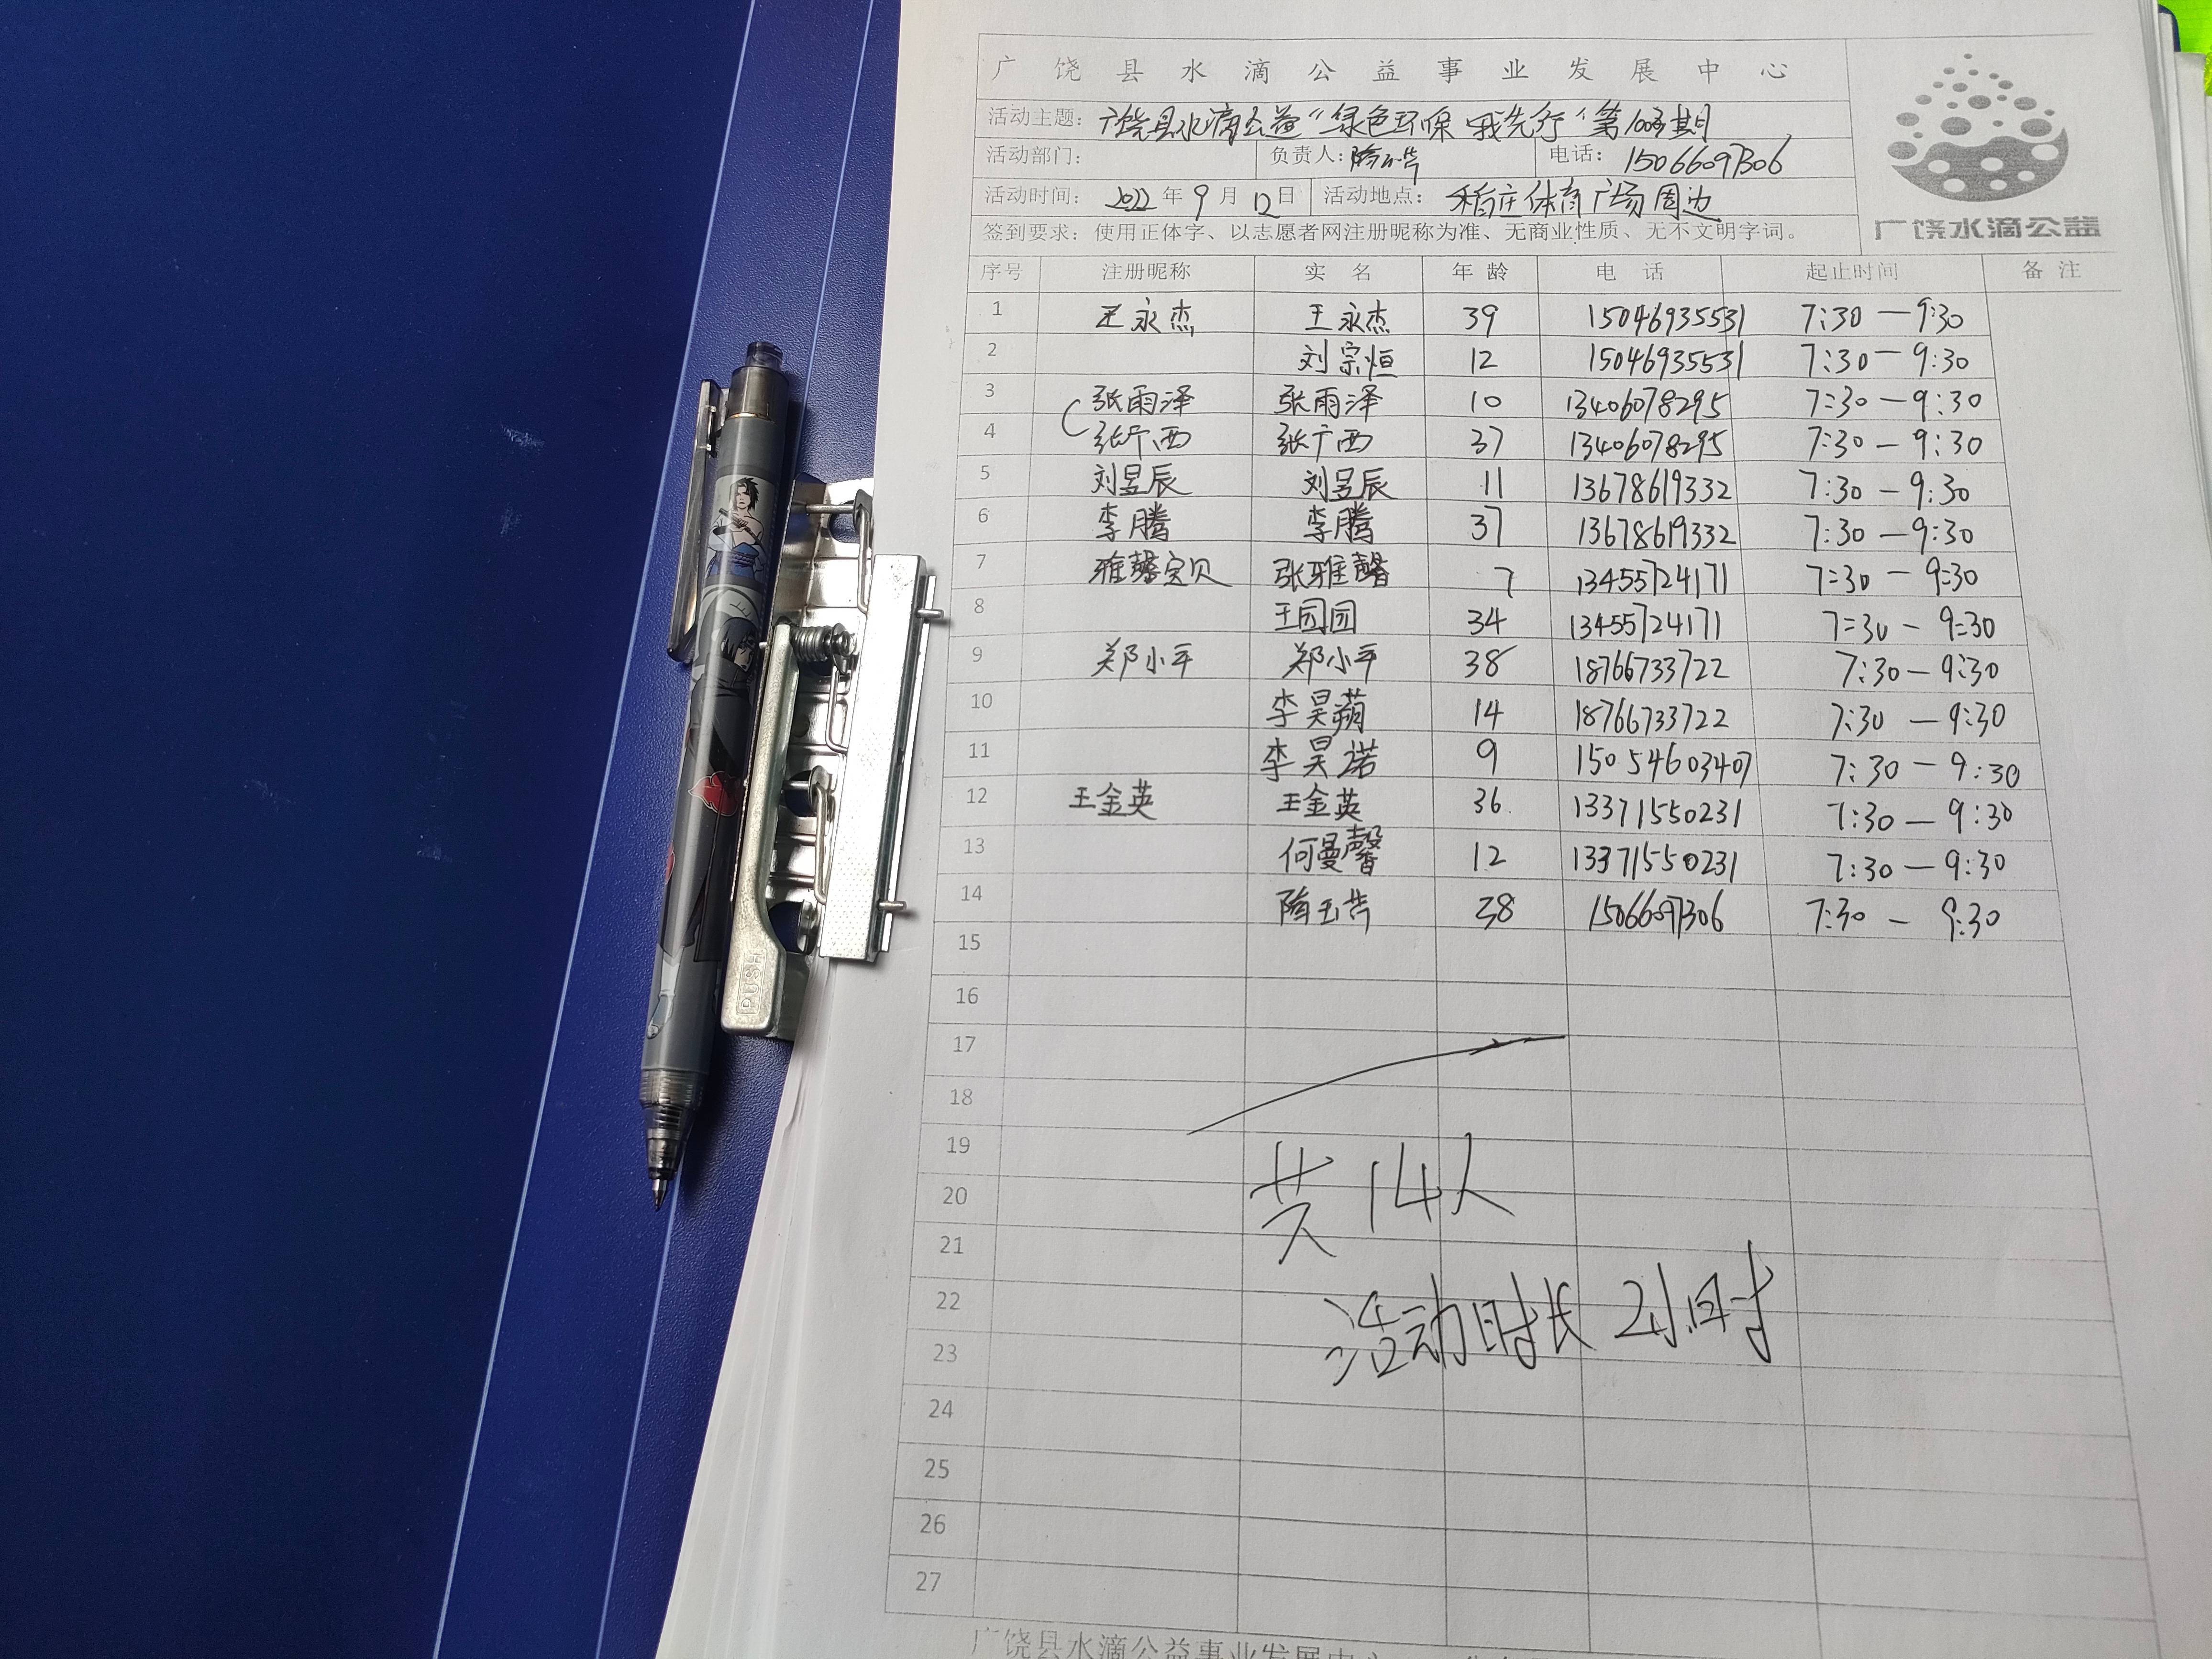 广饶县水滴公益事业发展中心
活动主题：广饶县水滴公益“绿色环保 我先行”第 期
活动部门： 负责人： 电话：15066097306
活动时间：2022年9月12日 活动地点：稻庄体育广场周边
签到要求：使用正体字、以志愿者网注册昵称为准、无商业性质、无不文明字词。
广饶水滴公益
序号 注册昵称 实名 年龄 电话 起止时间 备注
1 王永杰 王永杰 39 15046935531 7:30—9:30
2 刘宗恒 12 15046935531 7:30—9:30
3 张雨泽 张雨泽 10 13406078295 7:30—9:30
4 张广西 张广西 37 13406078295 7:30—9:30
5 刘昱辰 刘昱辰 11 13678619332 7:30—9:30
6 李腾 李腾 37 13678619332 7:30—9:30
7 雅馨宝贝 张雅馨 7 13455724171 7:30—9:30
8 王园园 34 13455724171 7:30—9:30
9 郑小平 郑小平 38 18766733722 7:30—9:30
10 李昊 14 18766733722 7:30—9:30
11 李昊诺 9 15054603407 7:30—9:30
12 王金英 王金英 36 13371550231 7:30—9:30
13 何曼馨 12 13371550231 7:30—9:30
14 隋玉芸 38 15066097306 7:30—9:30
15
16
17
18
19
20
21
22
23
24
25
26
27
共14人
活动时长2小时
广饶县水滴公益事业发展中心
PUSH